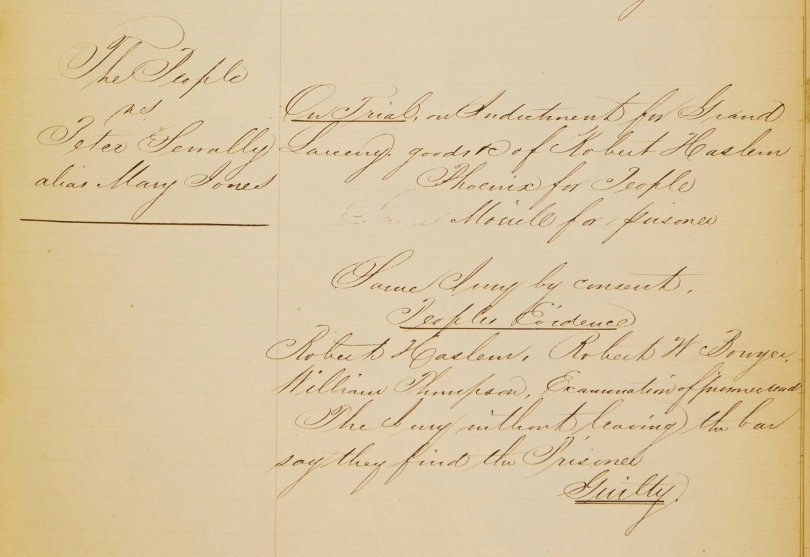 The People
vs
Peter Sewally
alias Mary Jones
On Trial, on Indictment for Grand
Larceny. goods &c of Robert Haslem
Phoenix for People
Morrill for prisoner
Same Jury by consent.
Peoples Evidence
Robert Haslem, Robert W Bowyer,
William Thompson, Examination of prisoner read
The Jury without leaving the bar
say they find the Prisoner
Guilty.